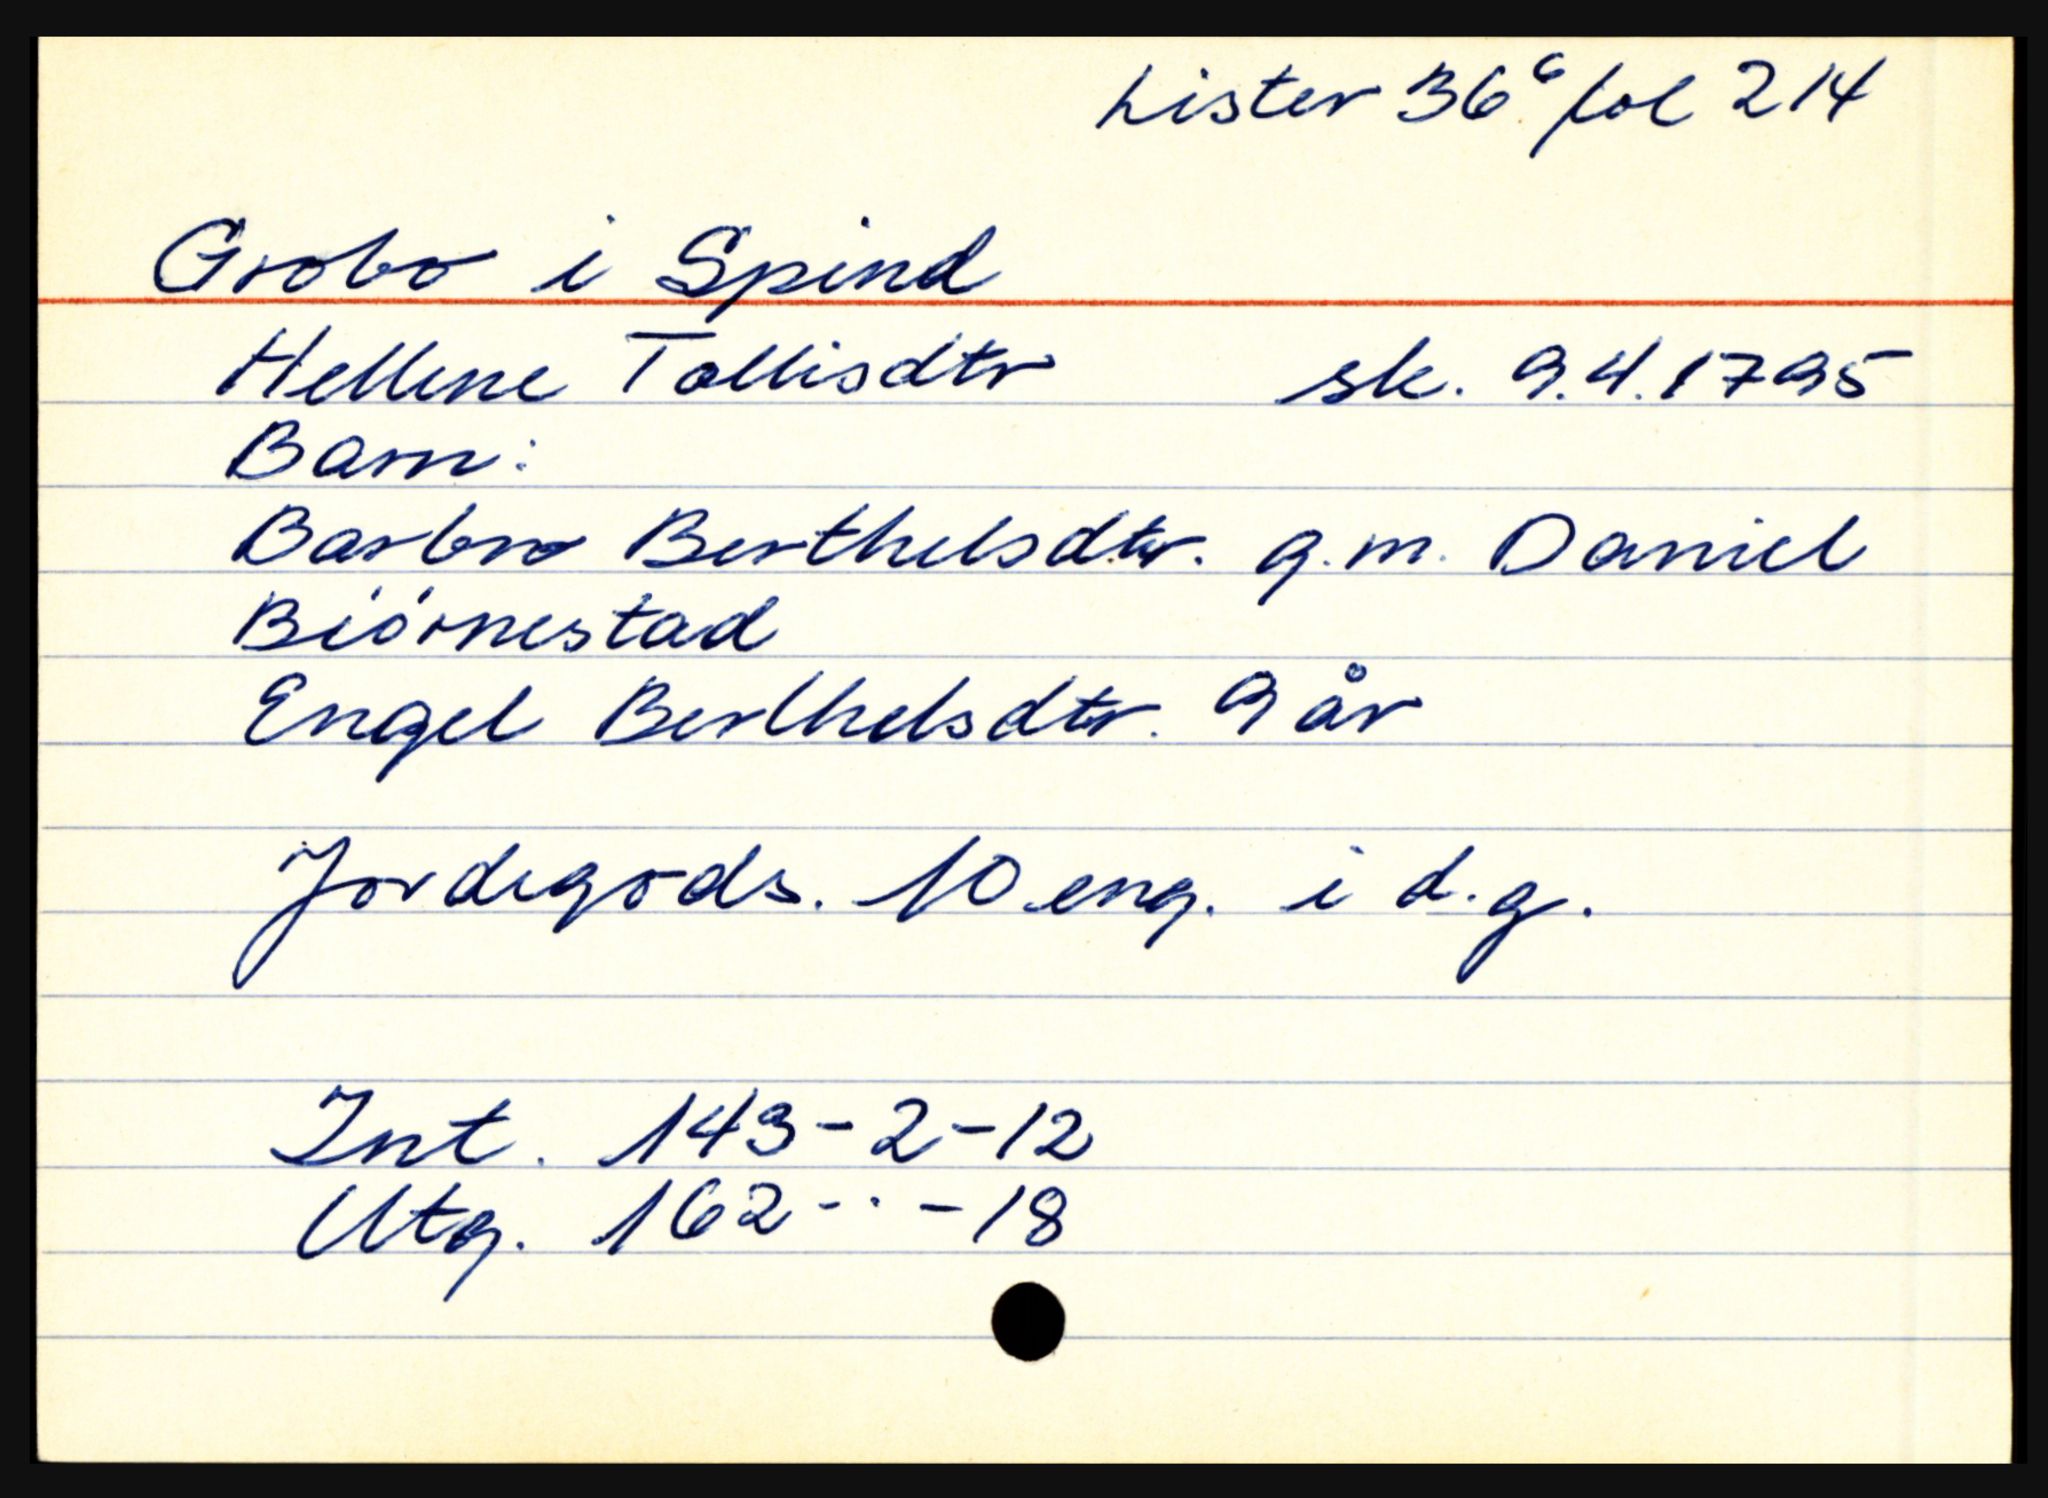 Lister 36 c fol 214
Grobo i Spind
Hellene Tollisdtr sk. 9.4.1795
Barn:
Barbro Berthelsdtr. g.m. Daniel
Biörnestad
Engel Berthelsdtr. 9 år
Jordegods. 10 eng. i d.g.
Int. 143-2-12
Utg. 162-·-18